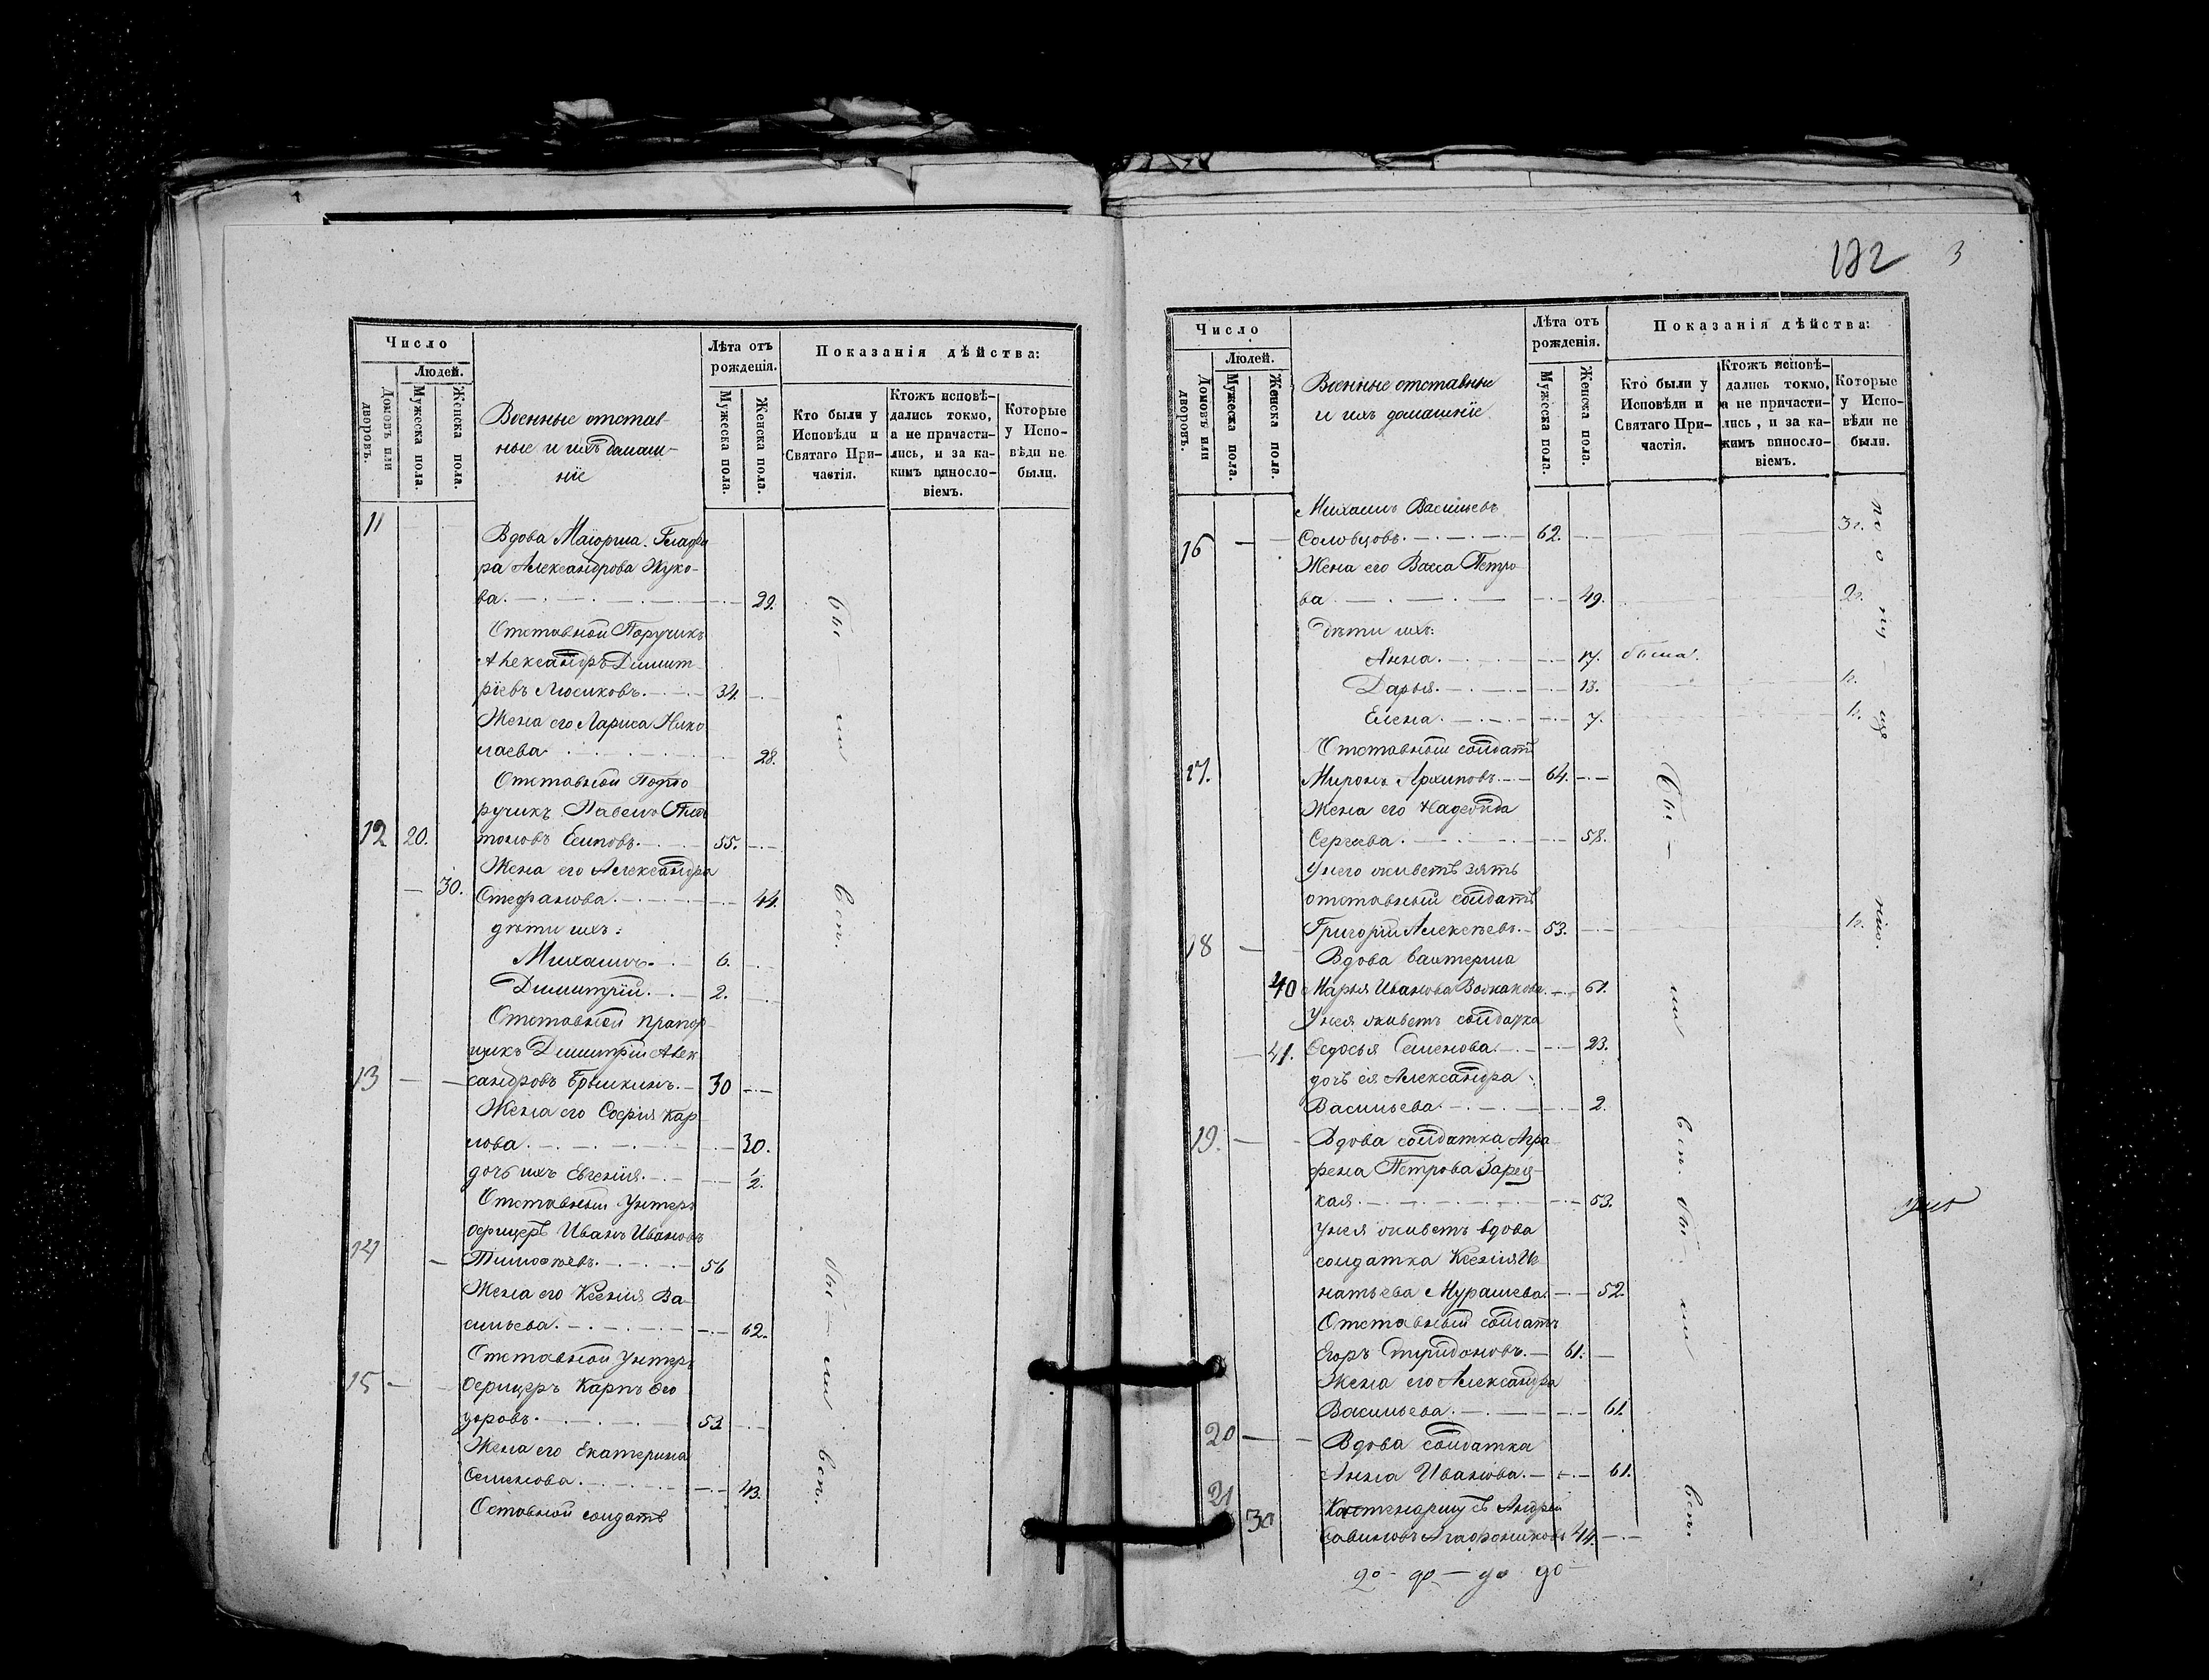 Число
Людей.
Домовъ или дворовъ.
Мужеска пола.
Женска пола.
Военные отстав-
ные и ихъ домаш-
нiе
Лѣта отъ
рожденiя.
Мужеска пола.
Женска пола.
Показанiя дѣйства:
Кто были у
Исповѣди и
Святаго При-
частiя.
Ктожъ исповѣ-
дались токмо,
а не причасти-
лись, и за ка-
кимъ виносло-
вiемъ.
Которые
у Испо-
вѣди не
были.
11
Вдова Маiорша
Александрова Жуко-
ва. 29.
Отставной Поручикъ
Александръ Димит-
рiевъ Люсиковъ. 34.
Жена его Лариса Нико
лаева 28.
Отставной Подпо
ручикъ Павелъ
12 20. Есиповъ. 55.
Жена его Александра
30. Стефанова. 44.
дѣти ихъ:
Михаилъ. 6.
Димитрiй. 2.
Отставной прапор-
щикъ Димитрiй Алек
13 сандровъ 30
Жена его Софiя Кар
лова. 30.
дочь ихъ Евгенiя. 1/2.
Отставный Унтеръ
офицеръ Иванъ Ивановъ
14 Тимоѳеевъ. 56
Жена его Ксенiя Ва-
сильева. 62.
Отставной Унтеръ
15 офицеръ Карпъ Ѳео
доровъ. 53
Жена его Екатерина
Семенова. 43.
Оставной солдатъ
бы — ли всп.
бы — ли всп.
182 3
Число
Людей.
Домовъ или дворовъ.
Мужеска пола.
Женска пола.
Военные отставные
и ихъ домашнiе
Лѣта отъ
рожденiя.
Мужеска пола.
Женска пола.
Показанiя дѣйства:
Кто были у
Исповѣди и
Святаго При-
частiя.
Ктожъ исповѣ-
дались токмо,
а не причасти-
лись, и за ка-
кимъ виносло-
вiемъ.
Которые
у Испо-
вѣди не
были.
Михаилъ Васильевъ
16 Соловцовъ. 62. 3г.
Жена его Васса Петро
ва 49. 2г.
дѣти ихъ:
Анна. 17. была.
Дарья. 13. 1г.
Елена. 7. 1г.
Отставный солдатъ
17. Миронъ Архиповъ. 64.
Жена его Надежда
Сергѣева. 58.
У него живетъ зять
отставный солдатъ
Григорiй Алексѣевъ. 53. 1г.
18 Вдова Вахтерша
40 Марья Иванова 61.
У нея живетъ солдатка
41. Ѳедосья Семенова. 23.
дочь ея Александра
Васильева. 2.
19. Вдова солдатка Агра
фена Петрова Зарец-
кая. 53.
У нея живетъ вдова
солдатка Ксенiя Иг
натьева Мурашева. 52.
Отставный солдатъ
Егоръ Спиридоновъ. 61.
Жена его Александра
Васильева. 61.
20 Вдова солдатка
Анна Иванова. 61.
21 Андрей
30 Савиновъ Агафониковъ 44.
бы — ли всп. бы — ли всп.